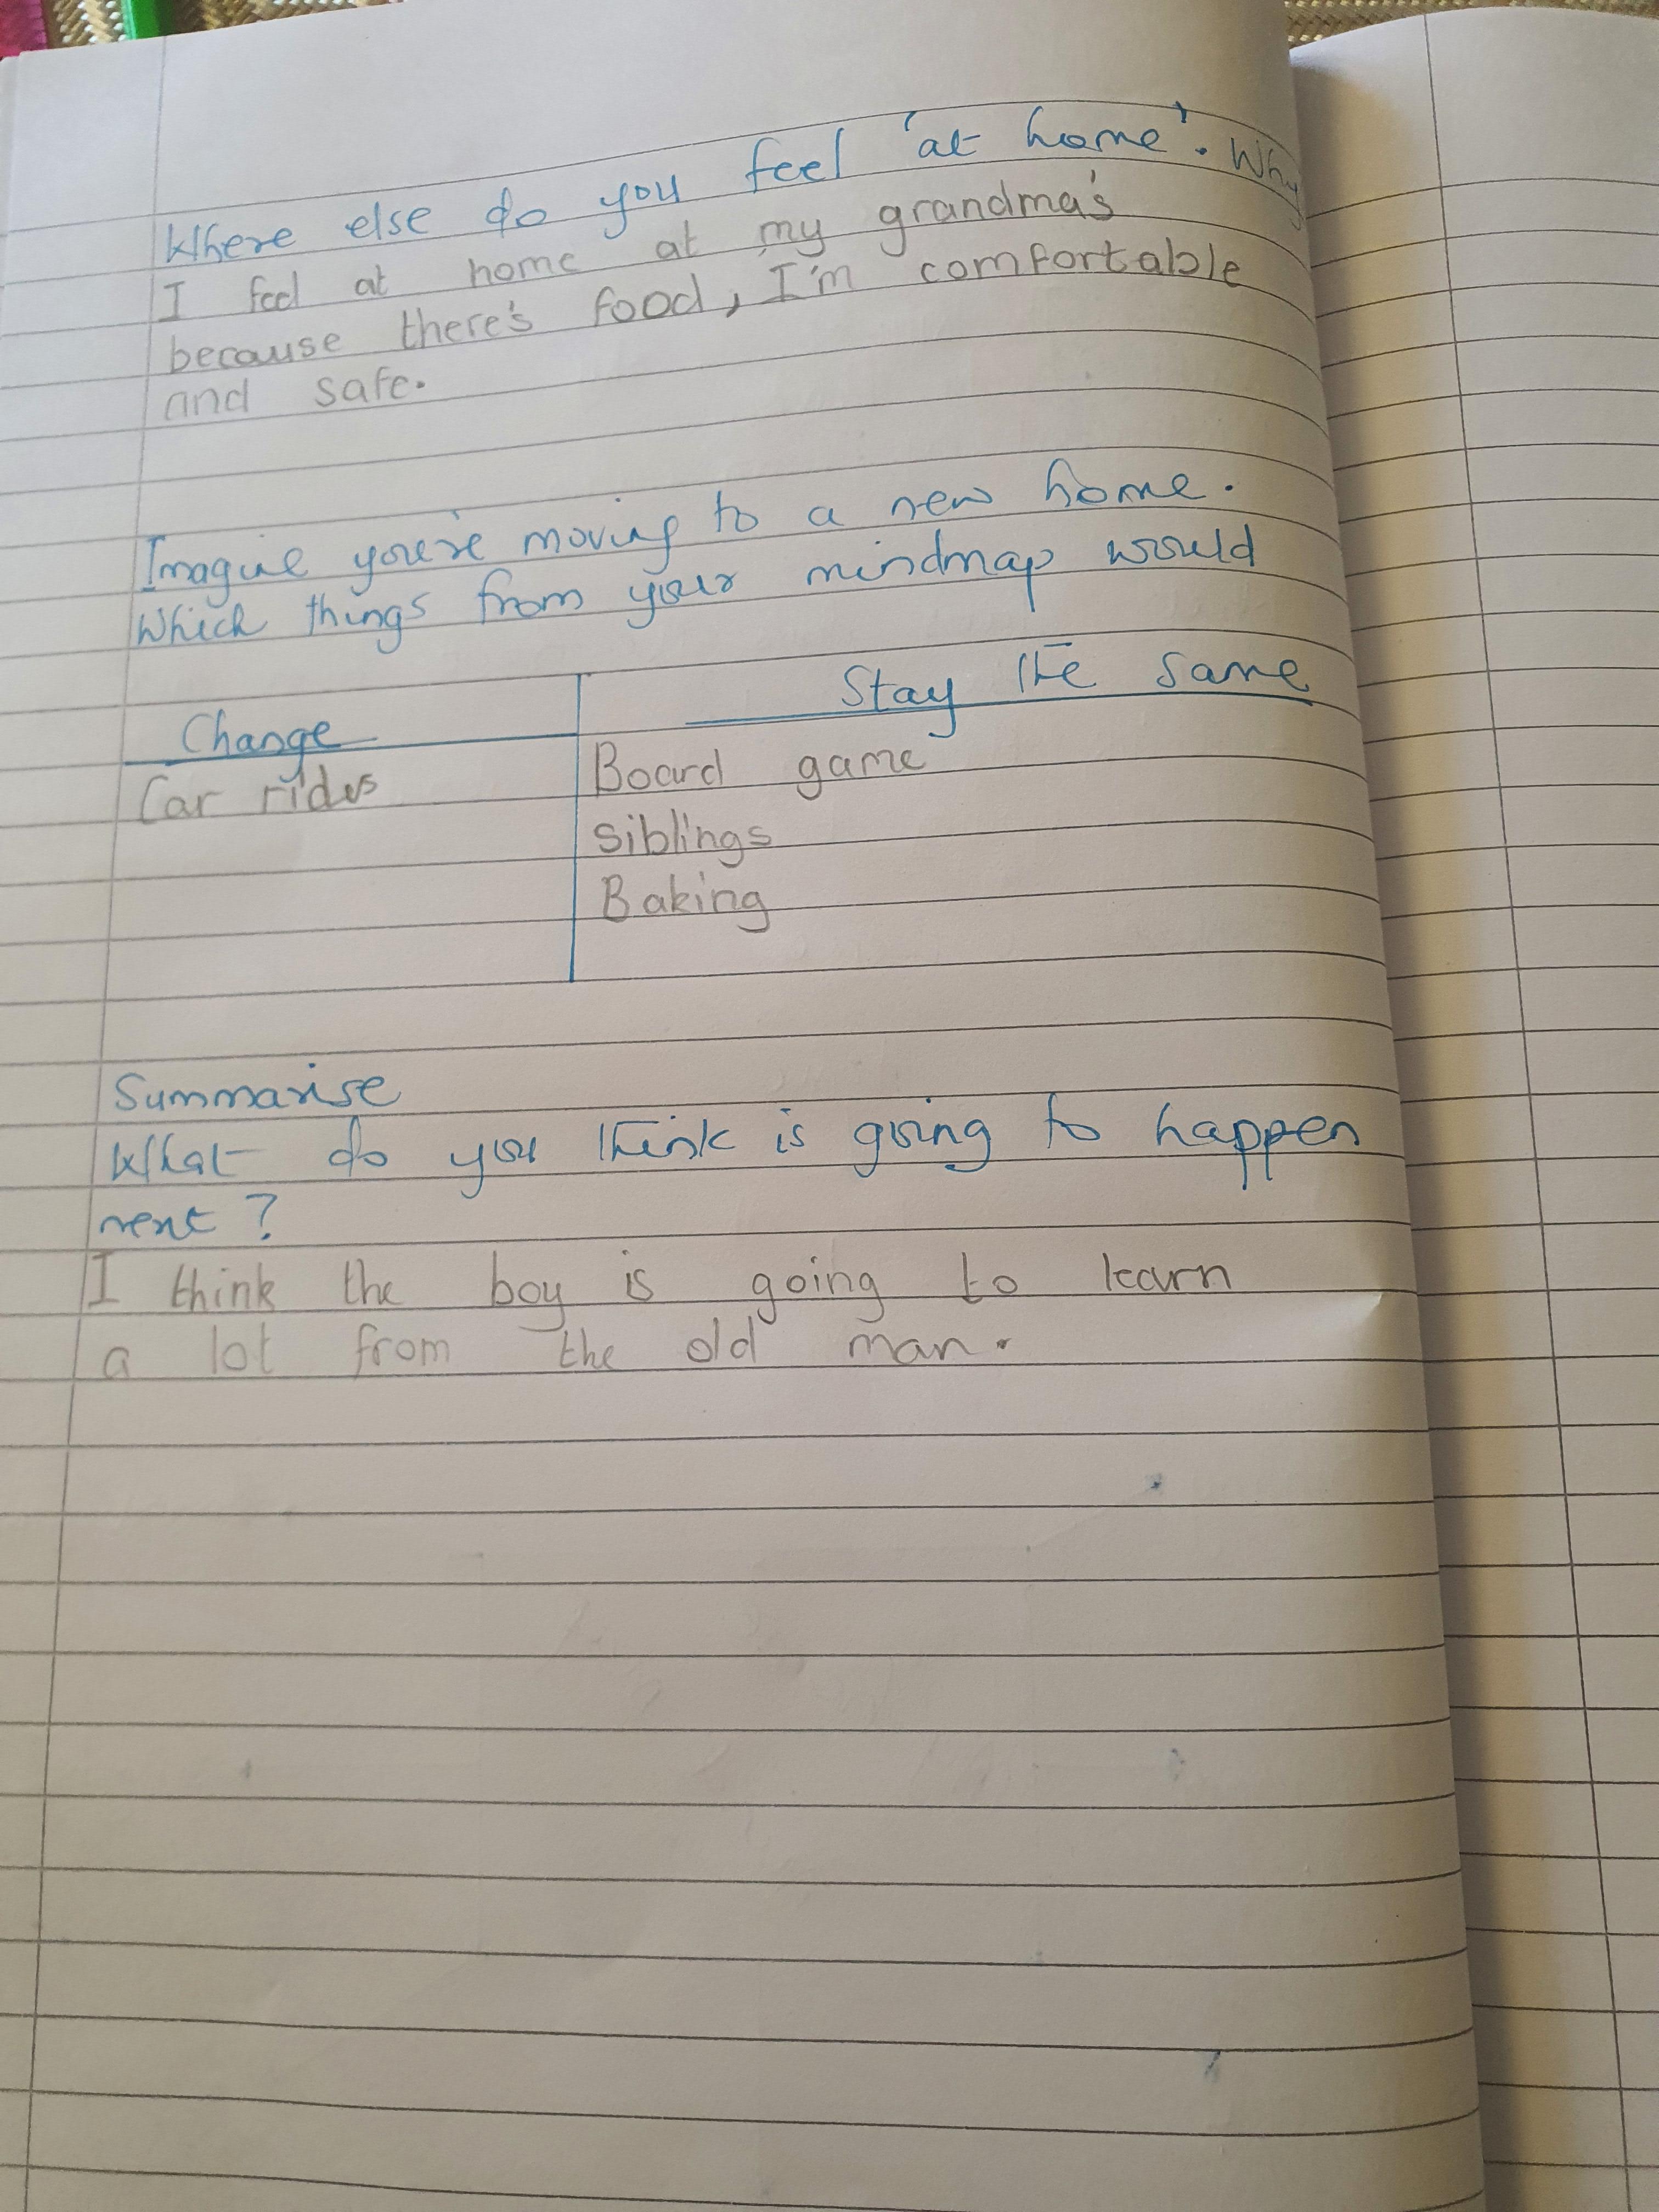 Where else do you feel 'at home'. Why
I feel at home at my grandma's
because there's food, I'm comfortable
and safe.
Imagine you're moving to a new home.
Which things from your mindmap would
Change Stay the same
Car rides Board game
siblings
Baking
Summarise
What do you think is going to happen
next?
I think the boy is going to learn
a lot from the old man.